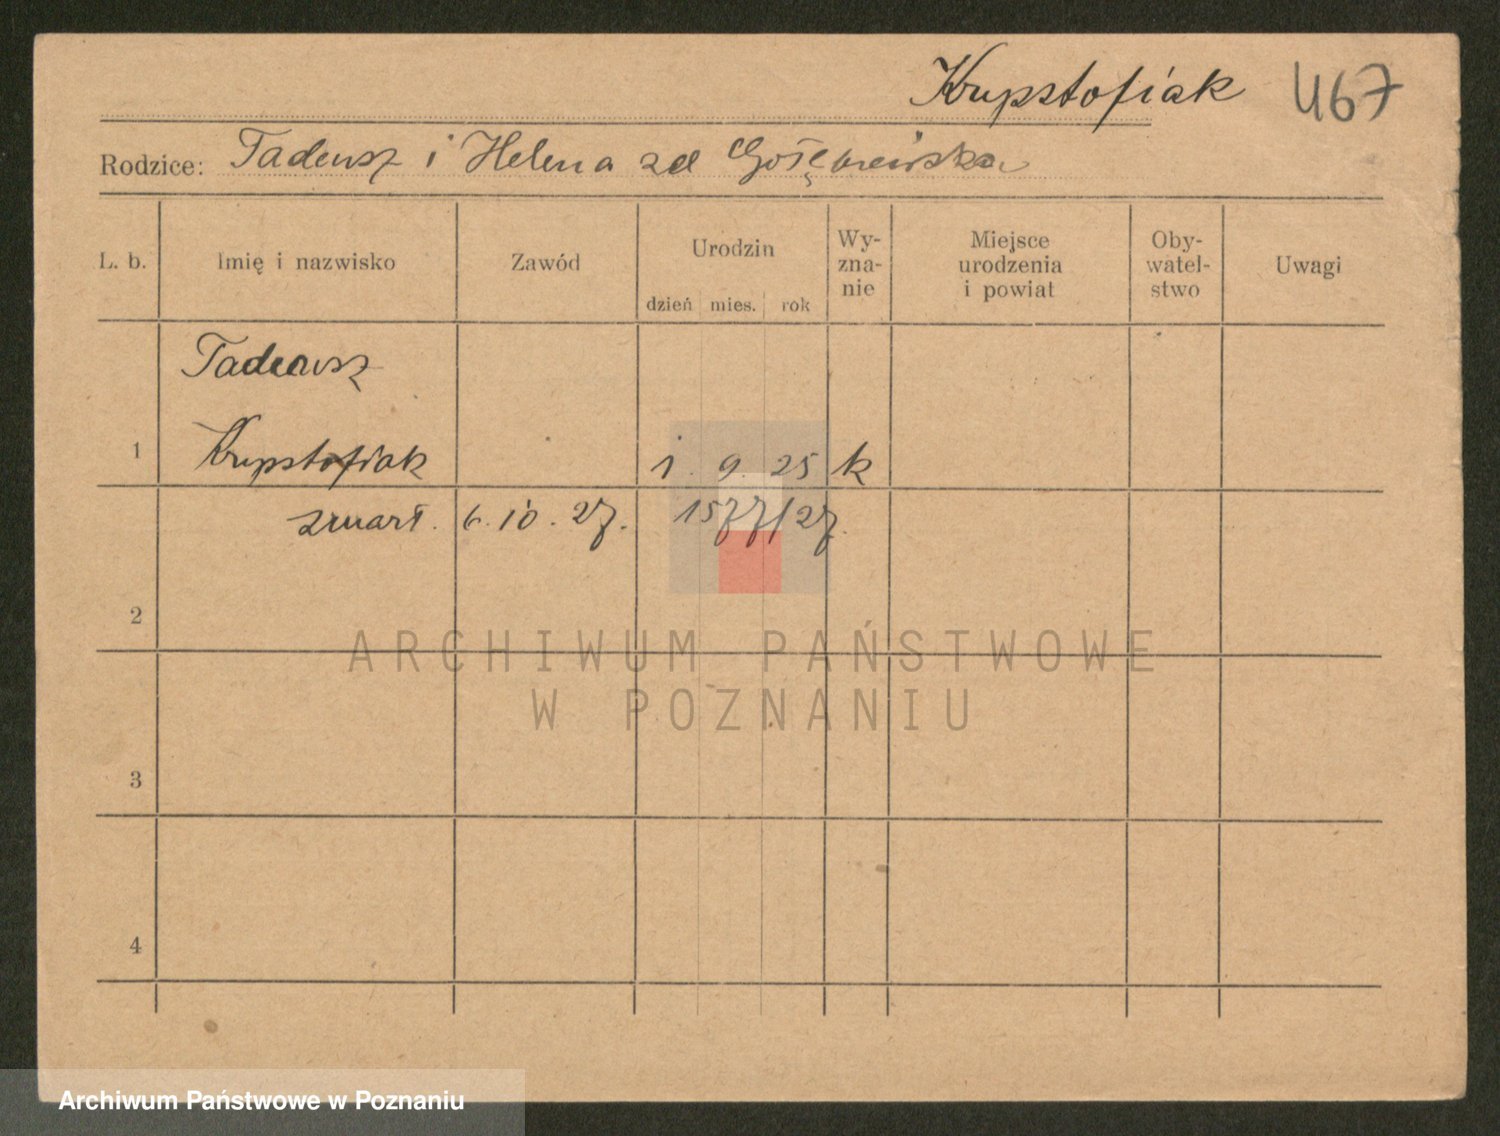 Krysztofiak 467
Rodzice: Tadeusz i Helena zd Gołębiewska
L. b. Imię i nazwisko Zawód Urodzin dzień mies. rok Wy-zna-nie Miejsce urodzenia i powiat Oby-watel-stwo Uwagi
Tadeusz
1 Krysztofiak 1. 9. 25 k
zmarł. 6. 10. 27. 1577/27.
2
ARCHIWUM PAŃSTWOWE
W POZNANIU
3
4
Archiwum Państwowe w Poznaniu